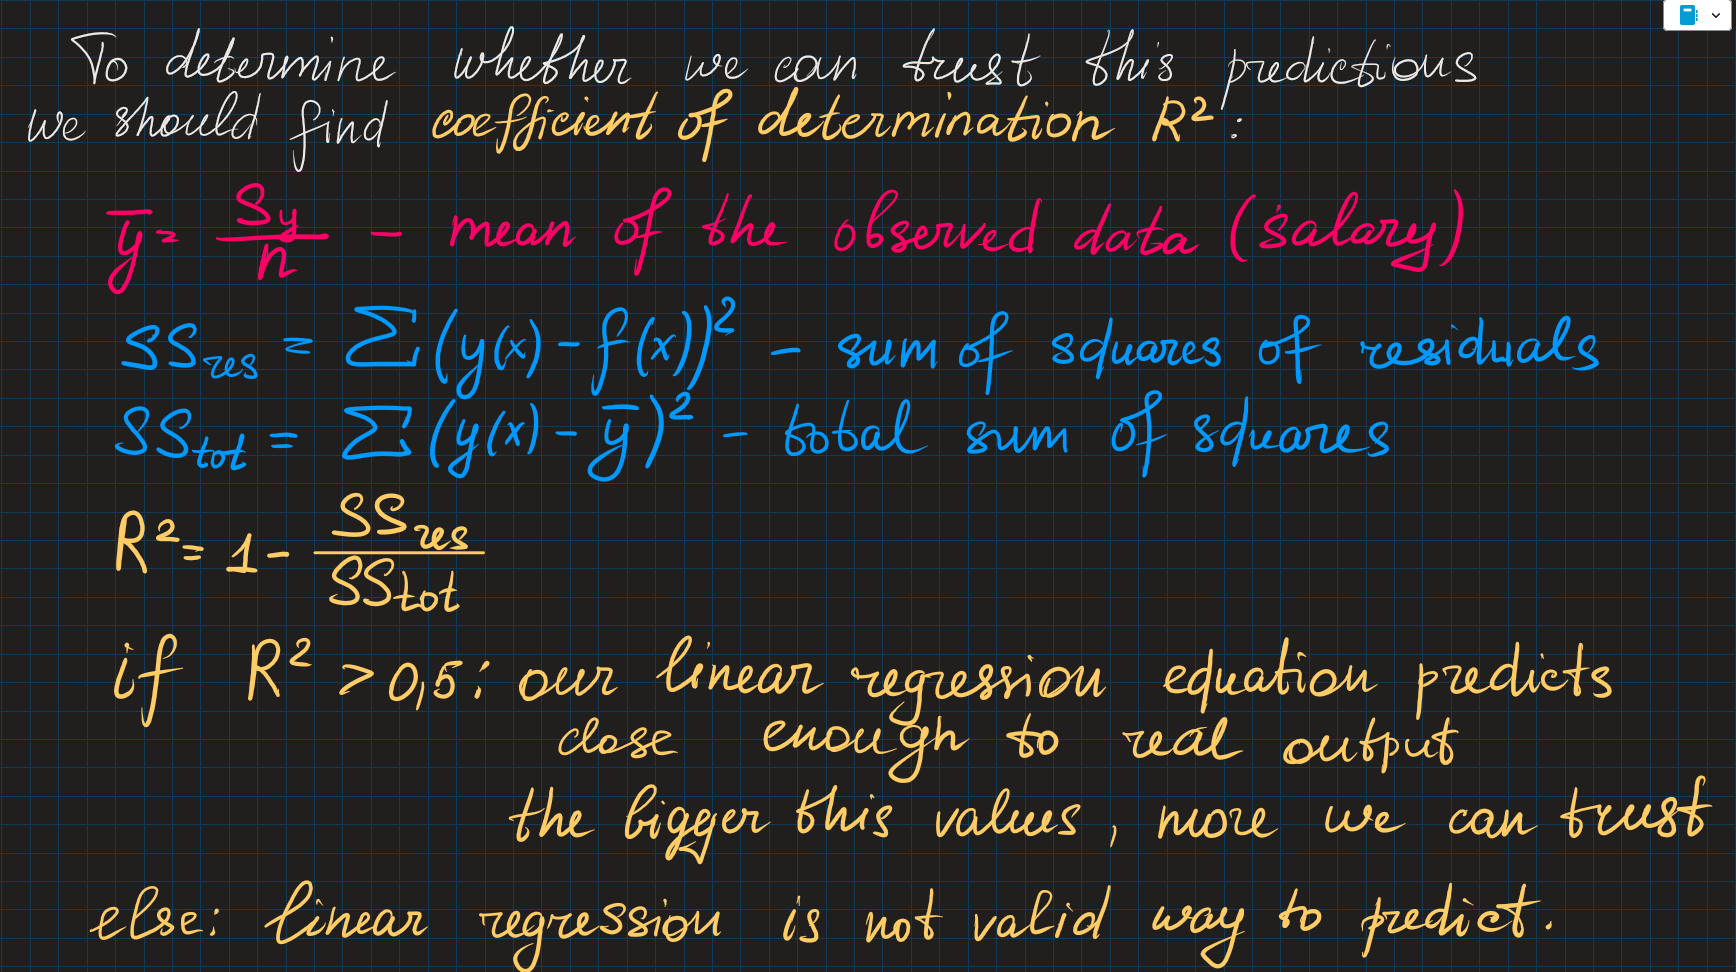 To determine whether we can trust this predictions
we should find coefficient of determination R²:
ȳ = Sy/n – mean of the observed data (salary)
SSres = ∑(y(x) - f(x))² – sum of squares of residuals
SStot = ∑(y(x) - ȳ)² – total sum of squares
R² = 1 - SSres/SStot
if R² > 0,5: our linear regression equation predicts
close enough to real output
the bigger this values, more we can trust
else: linear regression is not valid way to predict.